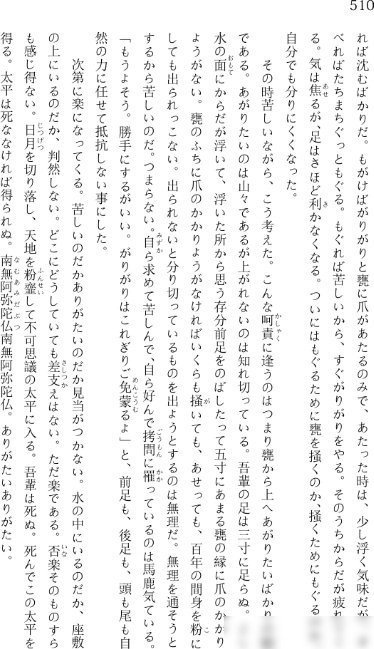 510
れば沈むばかりだ。もがけばがりがりと甕に爪があたるのみで、あたった時は、少し浮く気味だが
べればたちまちぐっともぐる。もぐれば苦しいから、すぐがりがりをやる。そのうちからだが疲れ
る。気は焦るが、足はさほど利かなくなる。ついにはもぐるために甕を掻くのか、掻くためにもぐる
自分でも分りにくくなった。
その時苦しいながら、こう考えた。こんな呵責に逢うのはつまり甕から上へあがりたいばかり
である。あがりたいのは山々であるが上がれないのは知れ切っている。吾輩の足は三寸に足らぬ。
水の面にからだが浮いて、浮いた所から思う存分前足をのばしたって五寸にあまる甕の縁に爪のかかり
ようがない。甕のふちに爪のかかりようがなければいくらも掻いても、あせっても、百年の間身を粉に
しても出られっこない。出られないと分り切っているものを出ようとするのは無理だ。無理を通そうと
するから苦しいのだ。つまらない。自ら求めて苦しんで、自ら好んで拷問に罹っているのは馬鹿気ている。
「もうよそう。勝手にするがいい。がりがりはこれぎりご免蒙るよ」と、前足も、後足も、頭も尾も自
然の力に任せて抵抗しない事にした。
次第に楽になってくる。苦しいのだかありがたいのだか見当がつかない。水の中にいるのだか、座敷
の上にいるのだか、判然しない。どこにどうしていても差支えはない。ただ楽である。否楽そのものすら
も感じ得ない。日月を切り落し、天地を粉韲して不可思議の太平に入る。吾輩は死ぬ。死んでこの太平を
得る。太平は死ななければ得られぬ。南無阿弥陀仏南無阿弥陀仏。ありがたいありがたい。